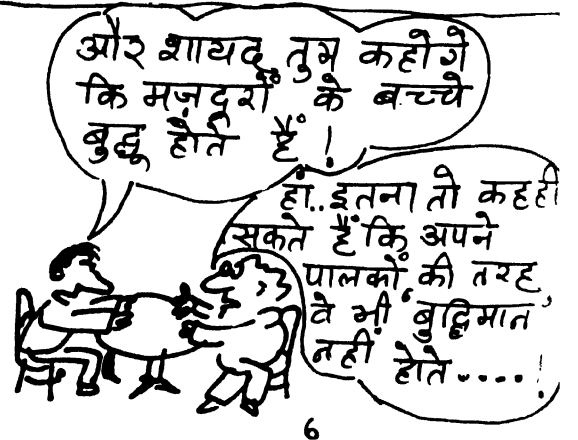 और शायद तुम कहोगे
कि मज़दूरों के बच्चे
बुद्धू होते हैं!
हाँ.. इतना तो कह ही
सकते हैं कि अपने
पालकों की तरह
वे भी 'बुद्धिमान'
नहीं होते....!
6